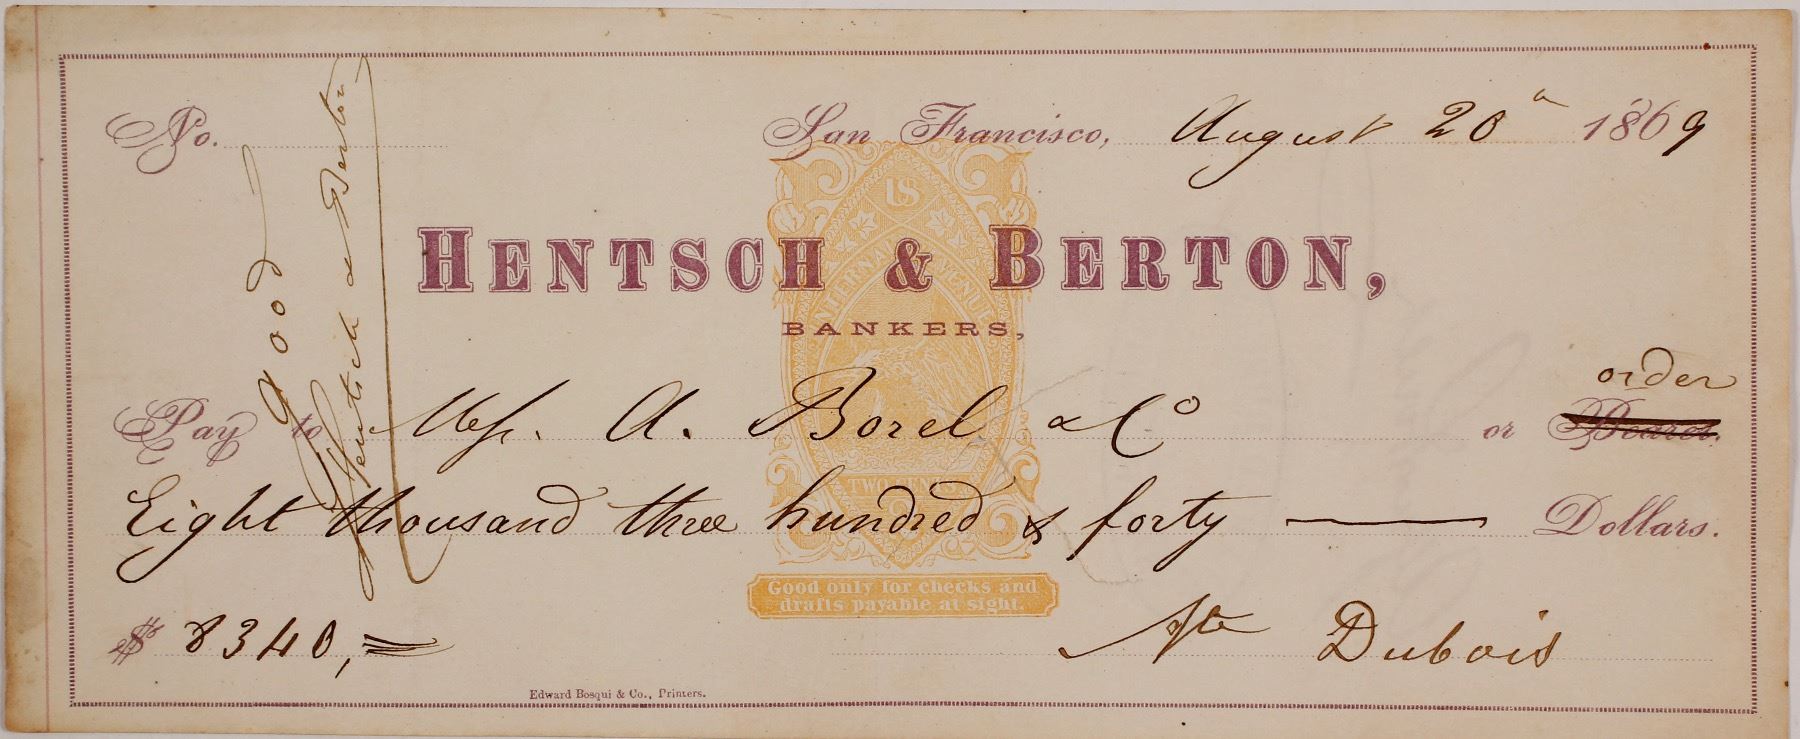 No. San Francisco, August 20 1869
US
INTERNAL REVENUE
HENTSCH & BERTON,
BANKERS,
good
Hentsch & Berton
order
Pay to Mess. A. Borel & Co or Bearer.
TWO CENTS
Eight thousand three hundred & forty Dollars.
Good only for checks and
drafts payable at sight.
$ 8340,= Ste Dubois
Edward Bosqui & Co., Printers.